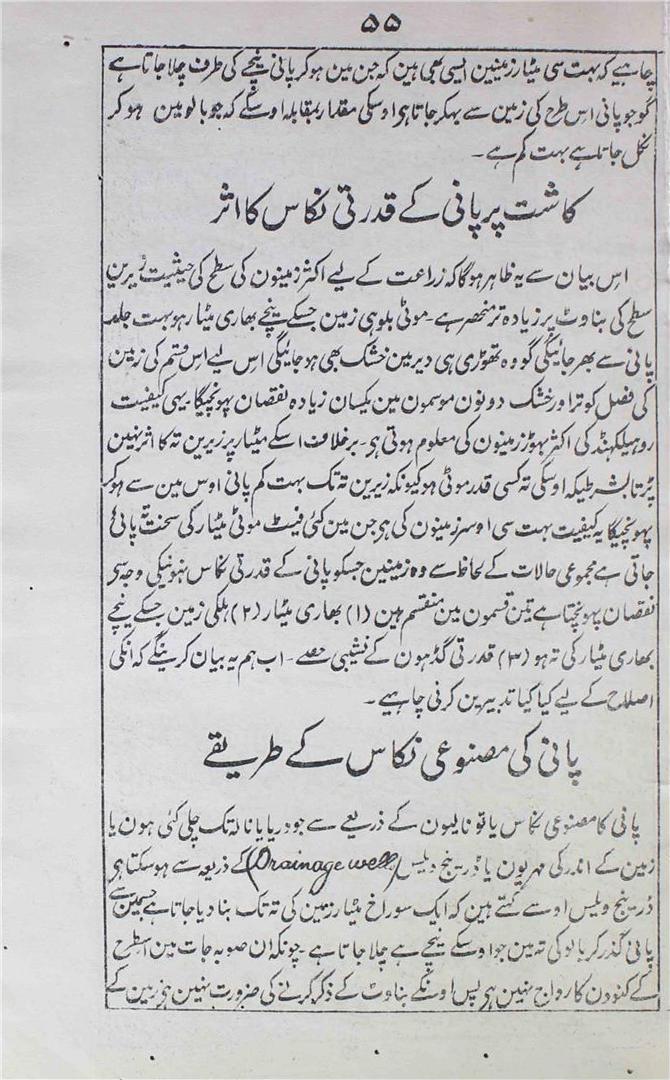 ۵۵
چاہیے کہ بہت سی مٹیار زمینین ایسی بھی ہین کہ جن مین ہوکر پانی نیچے کی طرف چلا جاتا ہے
گو جو پانی اس طرح کی زمین سے بہکر جاتا ہی اوسکی مقدار بمقابلہ اوسکے کہ جو بالو مین ہو کر
نکل جاتا ہے بہت کم ہے۔
کاشت پر پانی کے قدرتی نکاس کا اثر
اس بیان سے یہ ظاہر ہوگا کہ زراعت کے لیے اکثر زمینون کی سطح کی حیثیت زیرین
سطح کی بناوٹ پر زیادہ تر منحصر ہے۔ موٹی بلوہی زمین جسکے نیچے بھاری مٹیار ہو بہت جلد
پانی سے بھر جائیگی گو وہ تھوڑی ہی دیر مین خشک بھی ہو جائیگی اس لیے اس قسم کی زمین
کی فصل کو تر اور خشک دونون موسمون مین یکسان زیادہ نقصان پہونچیگا۔ یہی کیفیت
روہیلکھنڈ کی اکثر بھوڑ زمینون کی معلوم ہوتی ہی۔ برخلاف اسکے مٹیار پر زیرین تہ کا اثر نہین
پڑتا بشرطیکہ اوسکی تہ کسی قدر موٹی ہو کیونکہ زیرین تہ تک بہت کم پانی اوس مین سے ہوکر
پہونچیگا یہ کیفیت بہت سی اوسر زمینون کی ہی جن مین کئی فیٹ موٹی مٹیار کی سخت تہ پائی
جاتی ہے مجموعی حالات کے لحاظ سے وہ زمینین جسکو پانی کے قدرتی نکاس نہونیکی وجہ سی
نقصان پہونچتا ہے تین قسمون مین منقسم ہین (۱) بھاری مٹیار (۲) ہلکی زمین جسکے نیچے
بھاری مٹیار کی تہ ہو (۳) قدرتی گڈہون کے نشیبی حصے۔ اب ہم یہ بیان کرینگے کہ انکی
اصلاح کے لیے کیا کیا تدبیرین کرنی چاہیے۔
پانی کی مصنوعی نکاس کے طریقے
پانی کا مصنوعی نکاس یا تو نالیون کے ذریعے سے جو دریا یا نالہ تک چلی گئی ہون یا
زمین کے اندر کی مہریون یا ڈرینیج ویلس (Drainage well) کے ذریعہ سے ہو سکتا ہی
ڈرینیج ویلس اوسے کہتے ہین کہ ایک سوراخ مٹیار زمین کی تہ تک بنا دیا جاتا ہے جسمین سے
پانی گذر کر بالو کی تہ مین جو اوسکے نیچے ہے چلا جاتا ہے۔ چونکہ ان صوبہ جات مین اسطرح
کے کنوون کا رواج نہین ہی پس اونکے بناوٹ کے ذکر کرنے کی ضرورت نہین ہی زمین کے